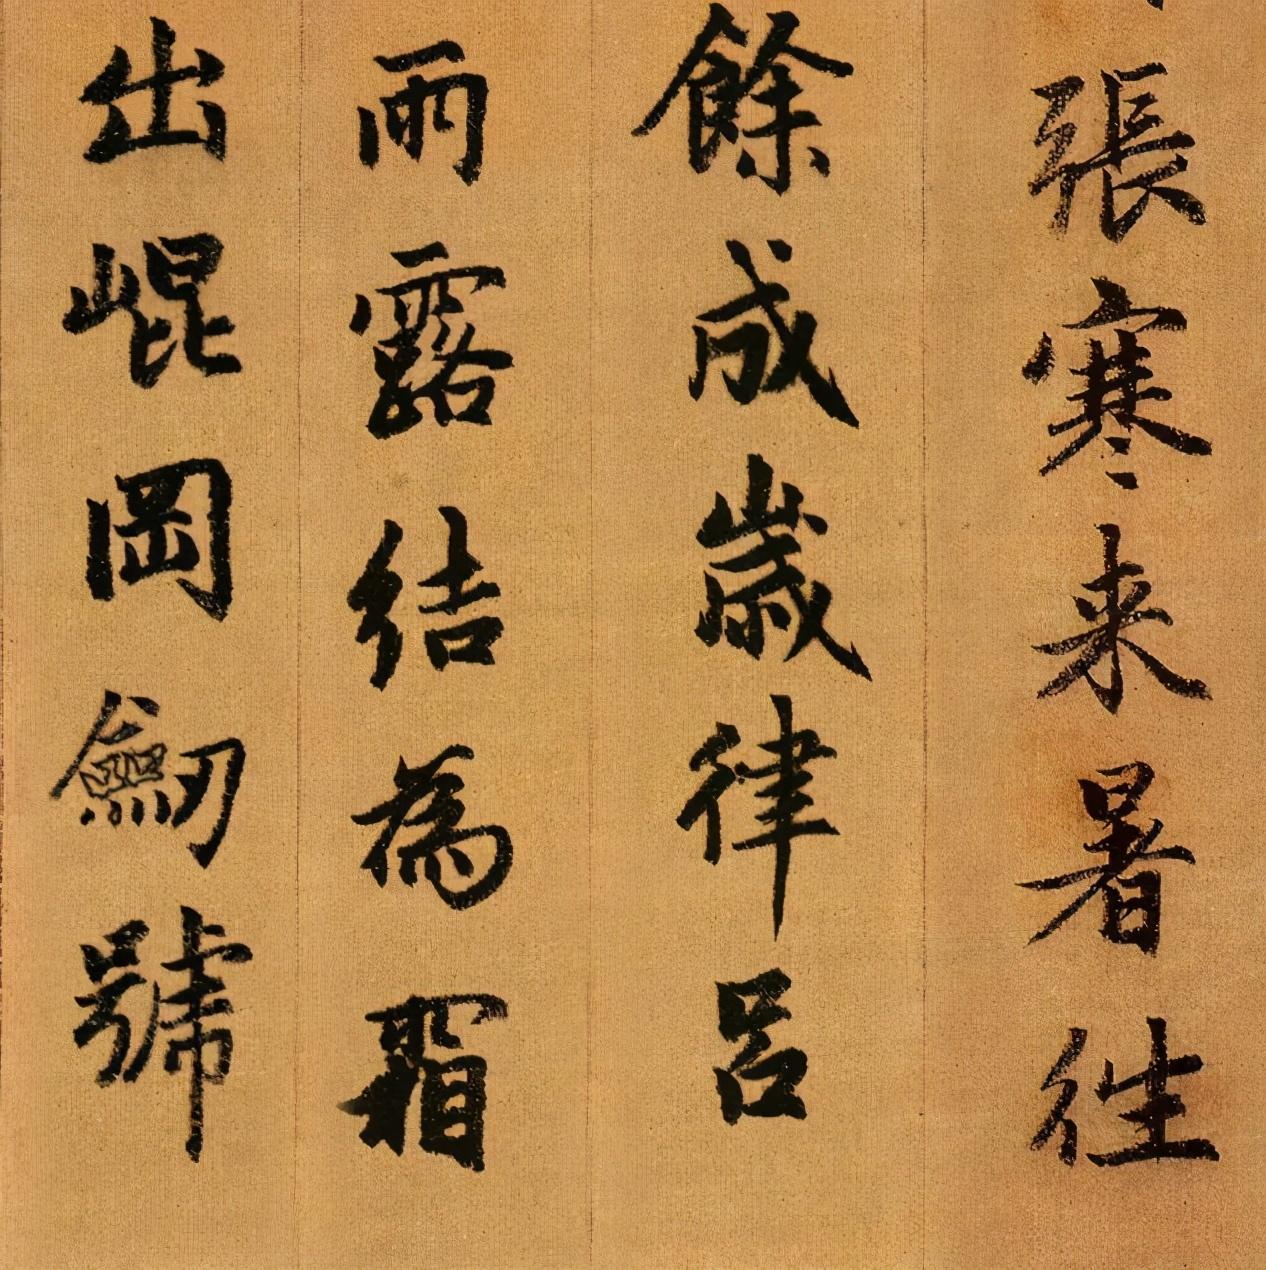 張寒来暑往
餘成歲律呂
雨露結為霜
出崐岡劒號